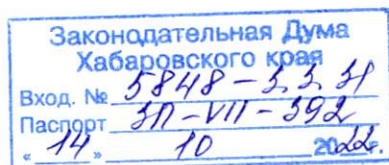 Законодательная Дума
Хабаровского края
Вход. № 5848-3.3.31
Паспорт ЗП-VII-392
"14" 10 2022г.